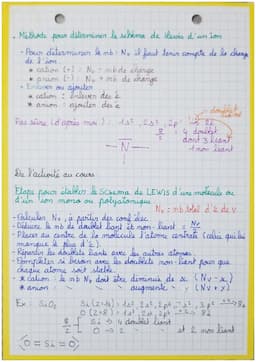 . Méthode pour déterminer le schéma de Lewis d'un ion
- Pour déterminer le nb : Nv il faut tenir compte de la charge
de l'ion
* cation (+) : Nv - nb de charge
* anion (-) : Nv + nb de charge
- Enlever ou ajouter
* cation : enlever des é
* anion : ajouter des é
Pas sûre (d'après moi) : 1s², 2s²,
8/2
4 doublet
dont 3 liant
1 non liant
doublet
– N –
De l'activité au cours
Etape pour établir le SCHEMA de LEWIS d'une molécule ou
d'un ion mono ou polyatomique
Nv = nb total d'é de v
- Calculer Nv, à partir des conf élec
- Déduire le nb de doublet liant et non-liant = Nv/2
- Placer au centre de la molécule l'atome centrale (celui qui lui
manque le plus d'é).
- Répartir les doublets liants avec les autres atomes
- Compléter si besoin avec les doublets non-liant pour que
chaque atome soit stable.
* cation : le nb Nv doit être diminué de x (Nv - x)
* anion : " " " augmenté " " (Nv + x)
Ex : SiO₂
Si → 4 doublet liant
O → 2 " " et 2 non liant
O = Si = O